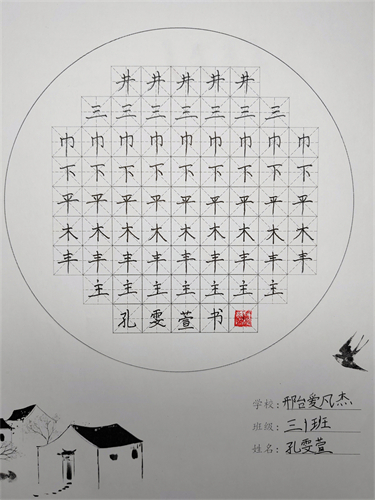 井井井井井
三三三三三三三
巾巾巾巾巾巾巾巾巾
下下下下下下下下下
平平平平平平平平平
木木木木木木木木木
丰丰丰丰丰丰丰丰丰
主主主主主主主
孔雯萱书
学校:邢台爱凡杰
班级:三1班
姓名:孔雯萱